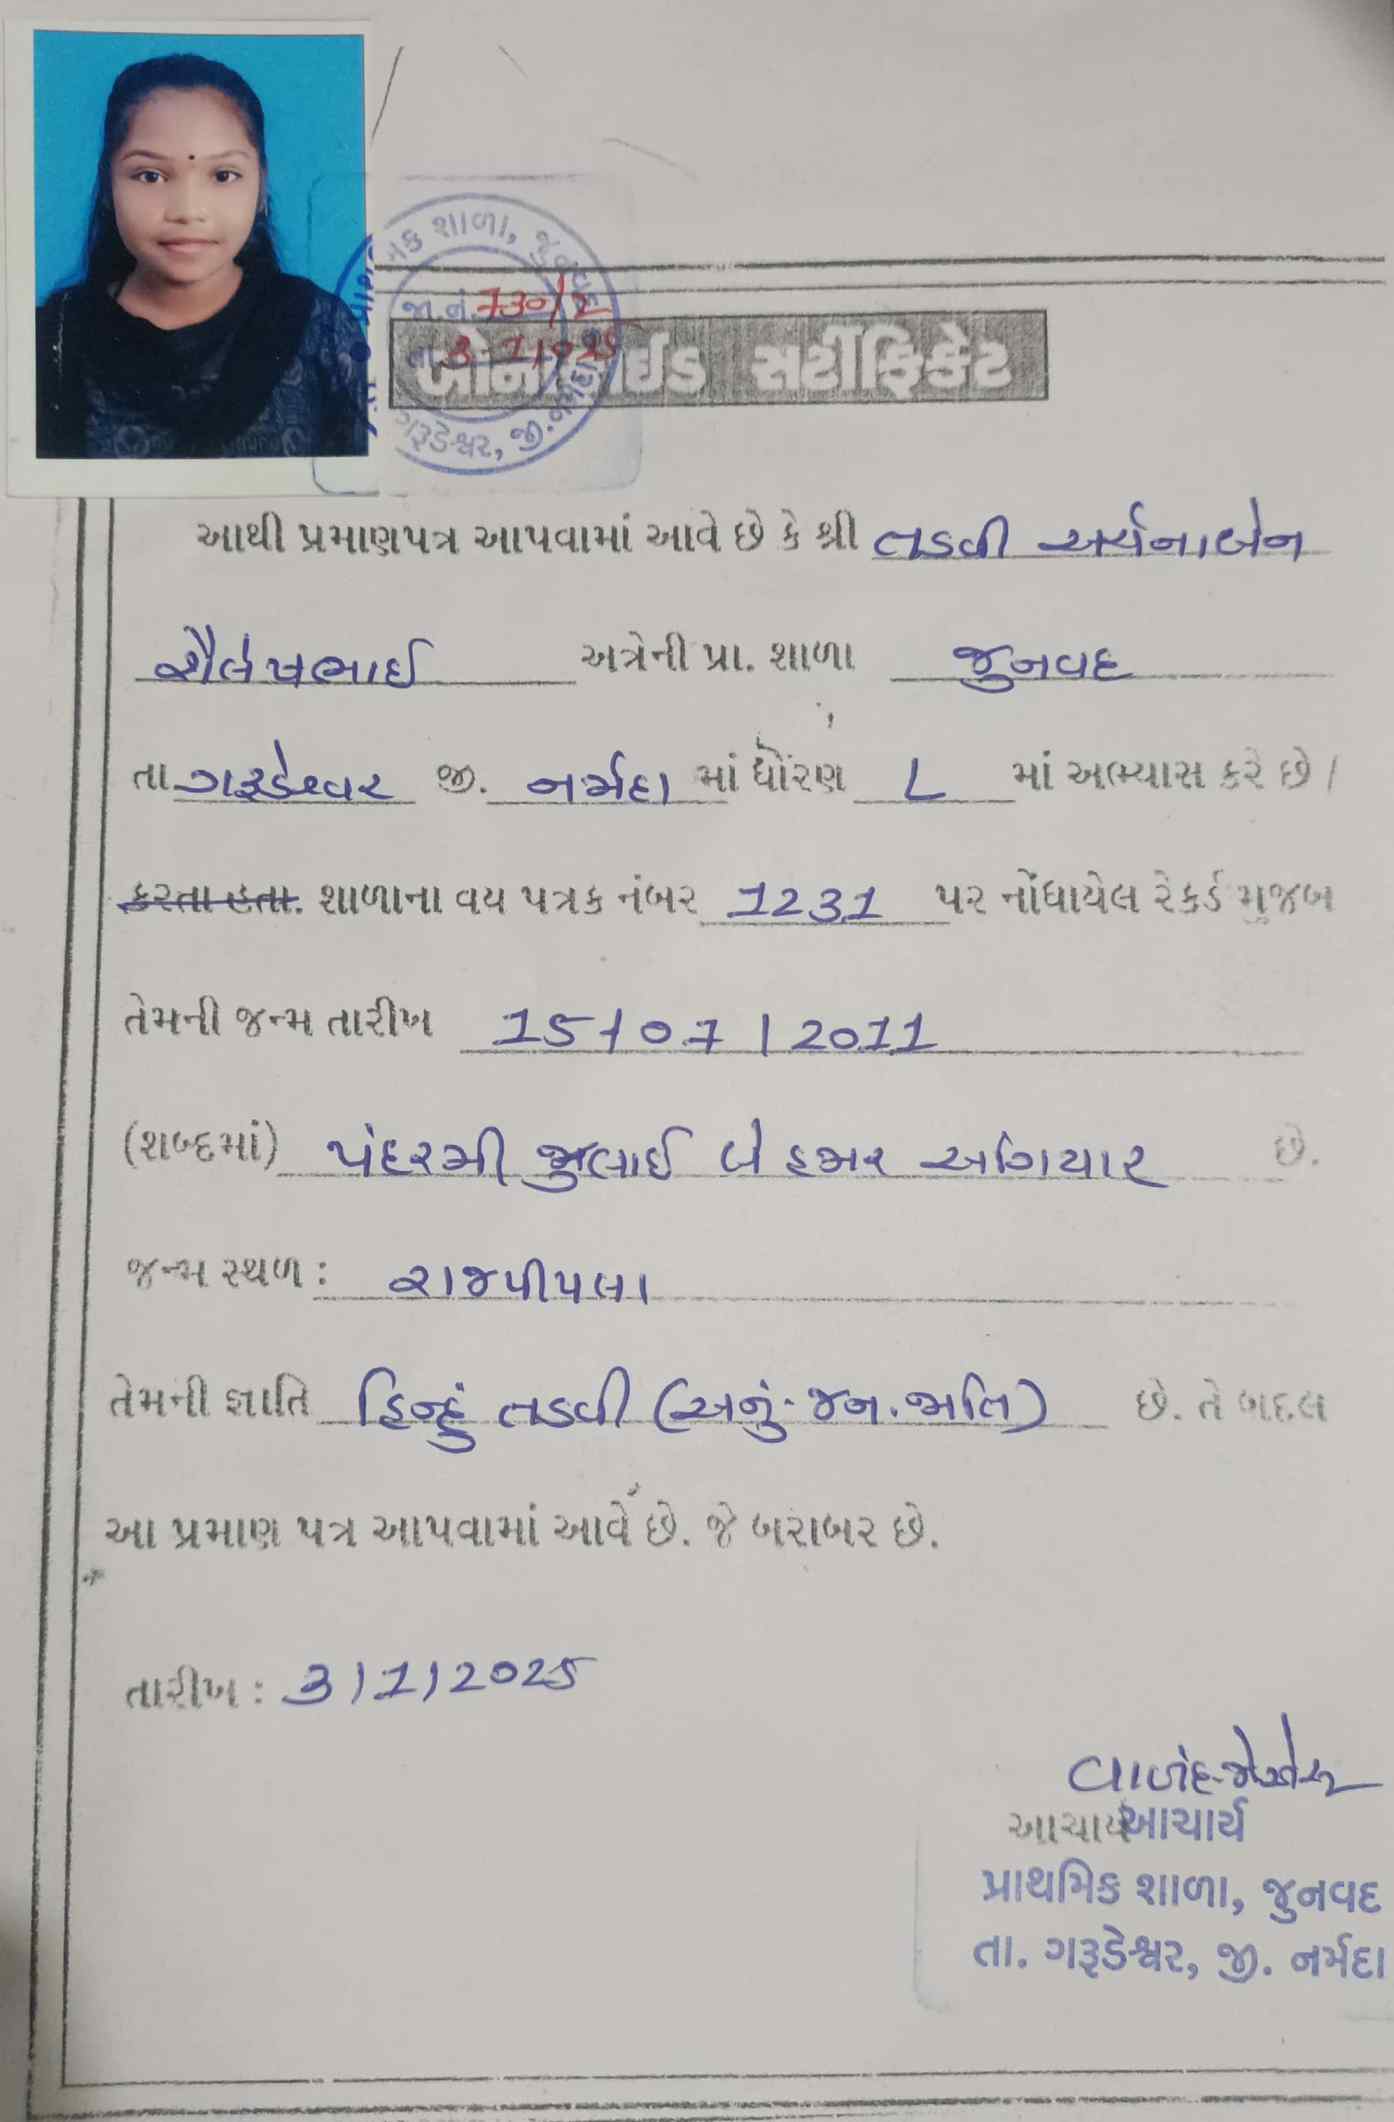 પ્રાથમિક શાળા, જુનવદ
જા.નં. 730/2
તા. 3-1-2025
ગરૂડેશ્વર, જી. નર્મદા
બોનાફાઈડ સર્ટીફિકેટ
આથી પ્રમાણપત્ર આપવામાં આવે છે કે શ્રી તડવી અર્ચનાબેન
શૈલેષભાઈ અત્રેની પ્રા. શાળા જુનવદ
તા ગરૂડેશ્વર જી. નર્મદા માં ધોરણ ૮ માં અભ્યાસ કરે છે /
કરતા હતા. શાળાના વય પત્રક નંબર 1231 પર નોંધાયેલ રેકર્ડ મુજબ
તેમની જન્મ તારીખ 15/07/2011
(શબ્દમાં) પંદરમી જુલાઈ બે હજાર અગિયાર છે.
જન્મ સ્થળ : રાજપીપલા
તેમની જ્ઞાતિ હિન્દું તડવી (અનું.જન.જાતિ) છે. તે બદલ
આ પ્રમાણ પત્ર આપવામાં આવે છે. જે બરાબર છે.
તારીખ : 3/1/2025
આચાર્ય
આચાર્ય
પ્રાથમિક શાળા, જુનવદ
તા. ગરૂડેશ્વર, જી. નર્મદા